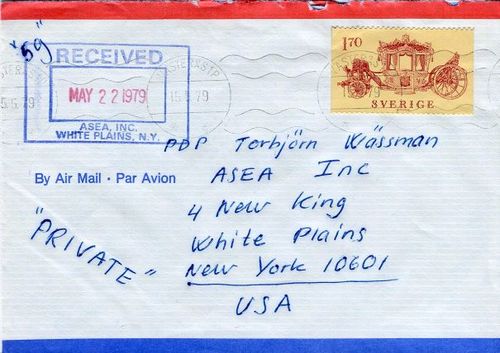 "59"
RECEIVED
MAY 22 1979
ASEA, INC.
WHITE PLAINS, N.Y.
15.5.79
1.70
SVERIGE
PDP Torbjörn Wässman
By Air Mail · Par Avion
ASEA Inc
4 New King
White Plains
New York 10601
USA
"PRIVATE"